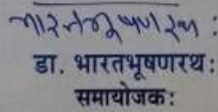 भारतभूषणरथः
डा. भारतभूषणरथः
समायोजकः